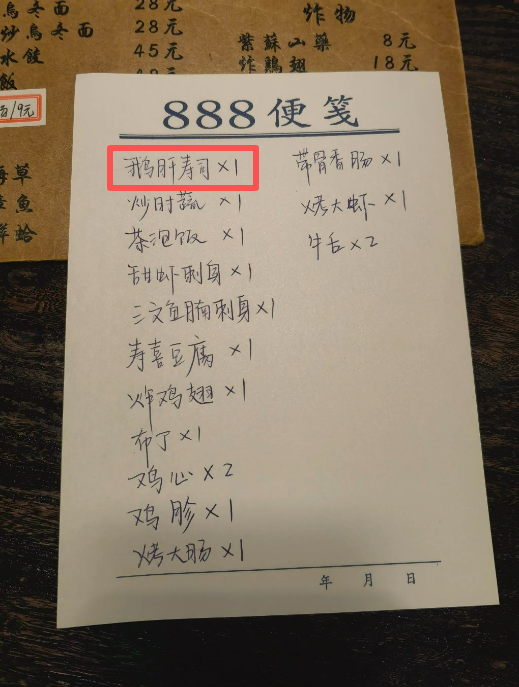 烏冬面 28元
炒烏冬面 28元
水餃 45元
飯 48元
炸物
紫蘇山藥 8元
炸鷄翅 18元
/9元
海草
章魚
鮮蛤
888便笺
鹅肝寿司×1
炒时蔬×1
茶泡饭×1
甜虾刺身×1
三文鱼腩刺身×1
寿喜豆腐×1
炸鸡翅×1
布丁×1
鸡心×2
鸡胗×1
烤大肠×1
带骨香肠×1
烤大虾×1
牛舌×2
年 月 日